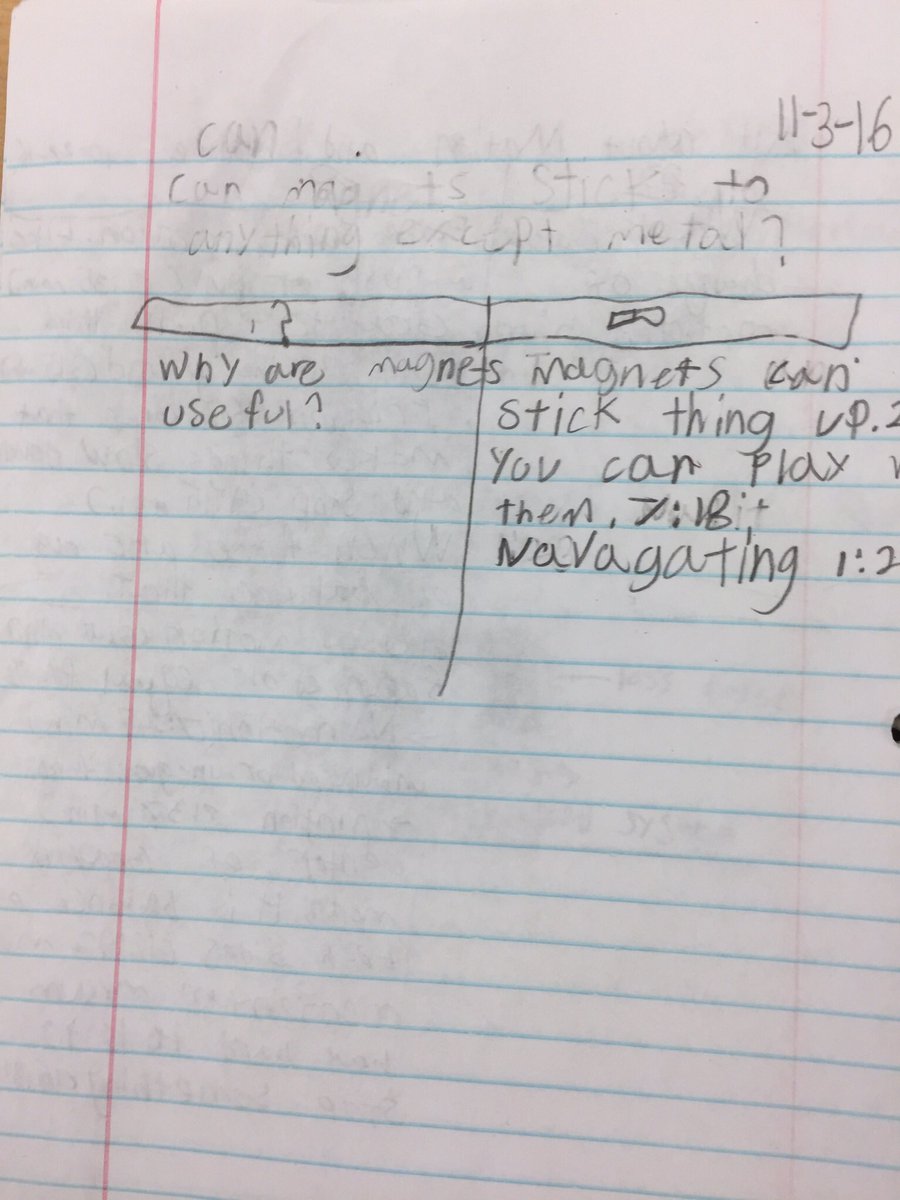 11-3-16
can
can magnets stick to
anything except metal?
?
Why are magnets
useful?
magnets can
stick thing up.2
You can play
them.
Navagating 1:2